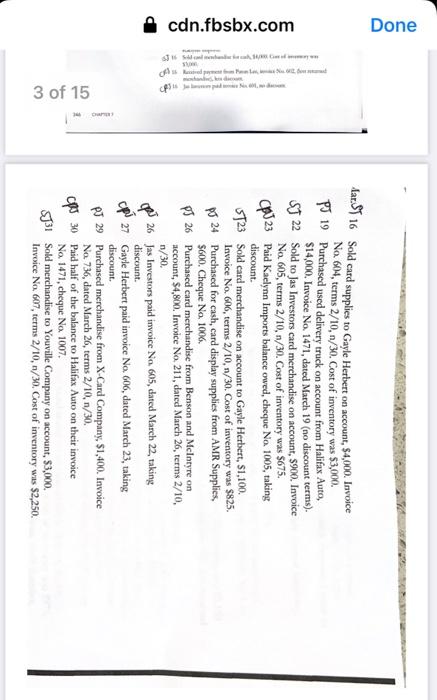 cdn.fbsbx.com
Done
SJ 16 Sold card merchandise for cash, $4,000. Cost of inventory was
$3,000.
CRJ 16 Received payment from Patron Lee, invoice No. 602, less returned
merchandise, less discount.
CRJ 16 Jas Investors paid invoice No. 601, no discount.
3 of 15
346 CHAPTER 7
Mar. SJ 16 Sold card supplies to Gayle Herbert on account, $4,000. Invoice
No. 604, terms 2/10, n/30. Cost of inventory was $3,000.
PJ 19 Purchased used delivery truck on account from Halifax Auto,
$14,000, Invoice No. 1471, dated March 19 (no discount terms).
SJ 22 Sold to Jas Investors card merchandise on account, $900. Invoice
No. 605, terms 2/10, n/30. Cost of inventory was $675.
CPJ 23 Paid Kaelynn Imports balance owed, cheque No. 1005, taking
discount.
SJ 23 Sold card merchandise on account to Gayle Herbert, $1,100.
Invoice No. 606, terms 2/10, n/30. Cost of inventory was $825.
PJ 24 Purchased for cash, card display supplies from AMR Supplies,
$600. Cheque No. 1006.
PJ 26 Purchased card merchandise from Benson and McIntyre on
account, $4,800. Invoice No. 211, dated March 26, terms 2/10,
n/30.
26 Jas Investors paid invoice No. 605, dated March 22, taking
discount.
27 Gayle Herbert paid invoice No. 606, dated March 23, taking
discount.
PJ 29 Purchased merchandise from X-Card Company, $1,400. Invoice
No. 736, dated March 26, terms 2/10, n/30.
CPJ 30 Paid half of the balance to Halifax Auto on their invoice
No. 1471, cheque No. 1007.
SJ 31 Sold merchandise to Youville Company on account, $3,000.
Invoice No. 607, terms 2/10, n/30. Cost of inventory was $2,250.